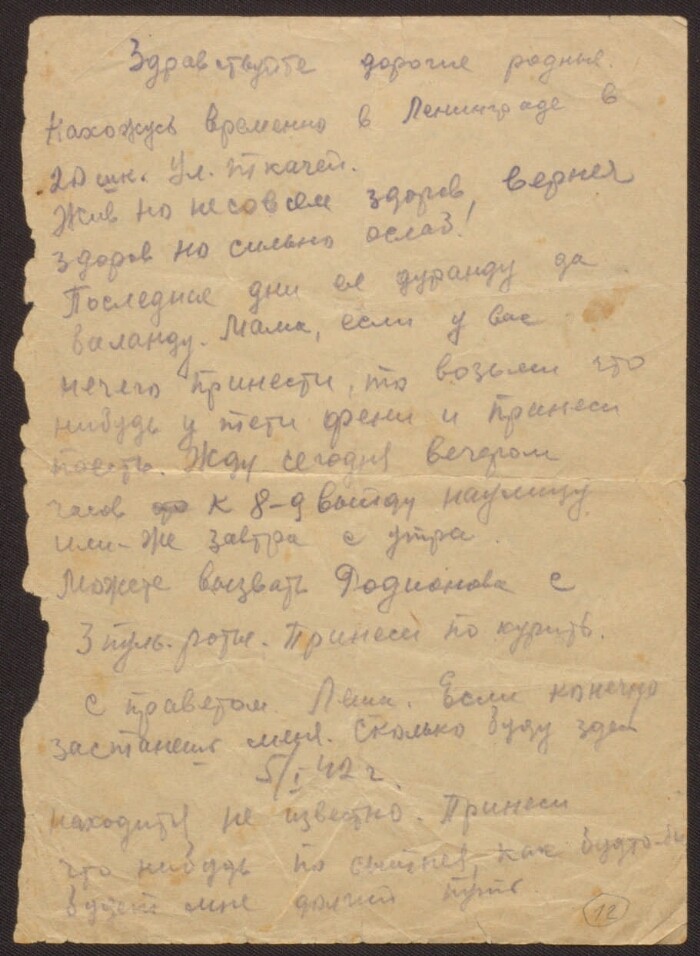 Здравствуйте дорогие родные.
Нахожусь временно в Ленинграде в
20 шк. Ул. Ткачей.
Жив но несовсем здоров, вернея
здоров но сильно ослаб!
Последние дни ел дуранду да
валанду. Мама, если у вас
нечего принести, то возьми что
нибудь у тети Фени и принеси
поесть. Жду сегодня вечером
часов к 8-9 выйду наулицу
или-же завтра с утра.
Можете вызвать Родионова с
3 пуль. роты. Принеси по курить.
С приветом Леша. Если конечно
застанешь меня. Сколько буду здес
5/I 42 г.
находится не известно. Принеси
что нибудь по сытнея, как будто-бы
будет мне долгий путь.
12